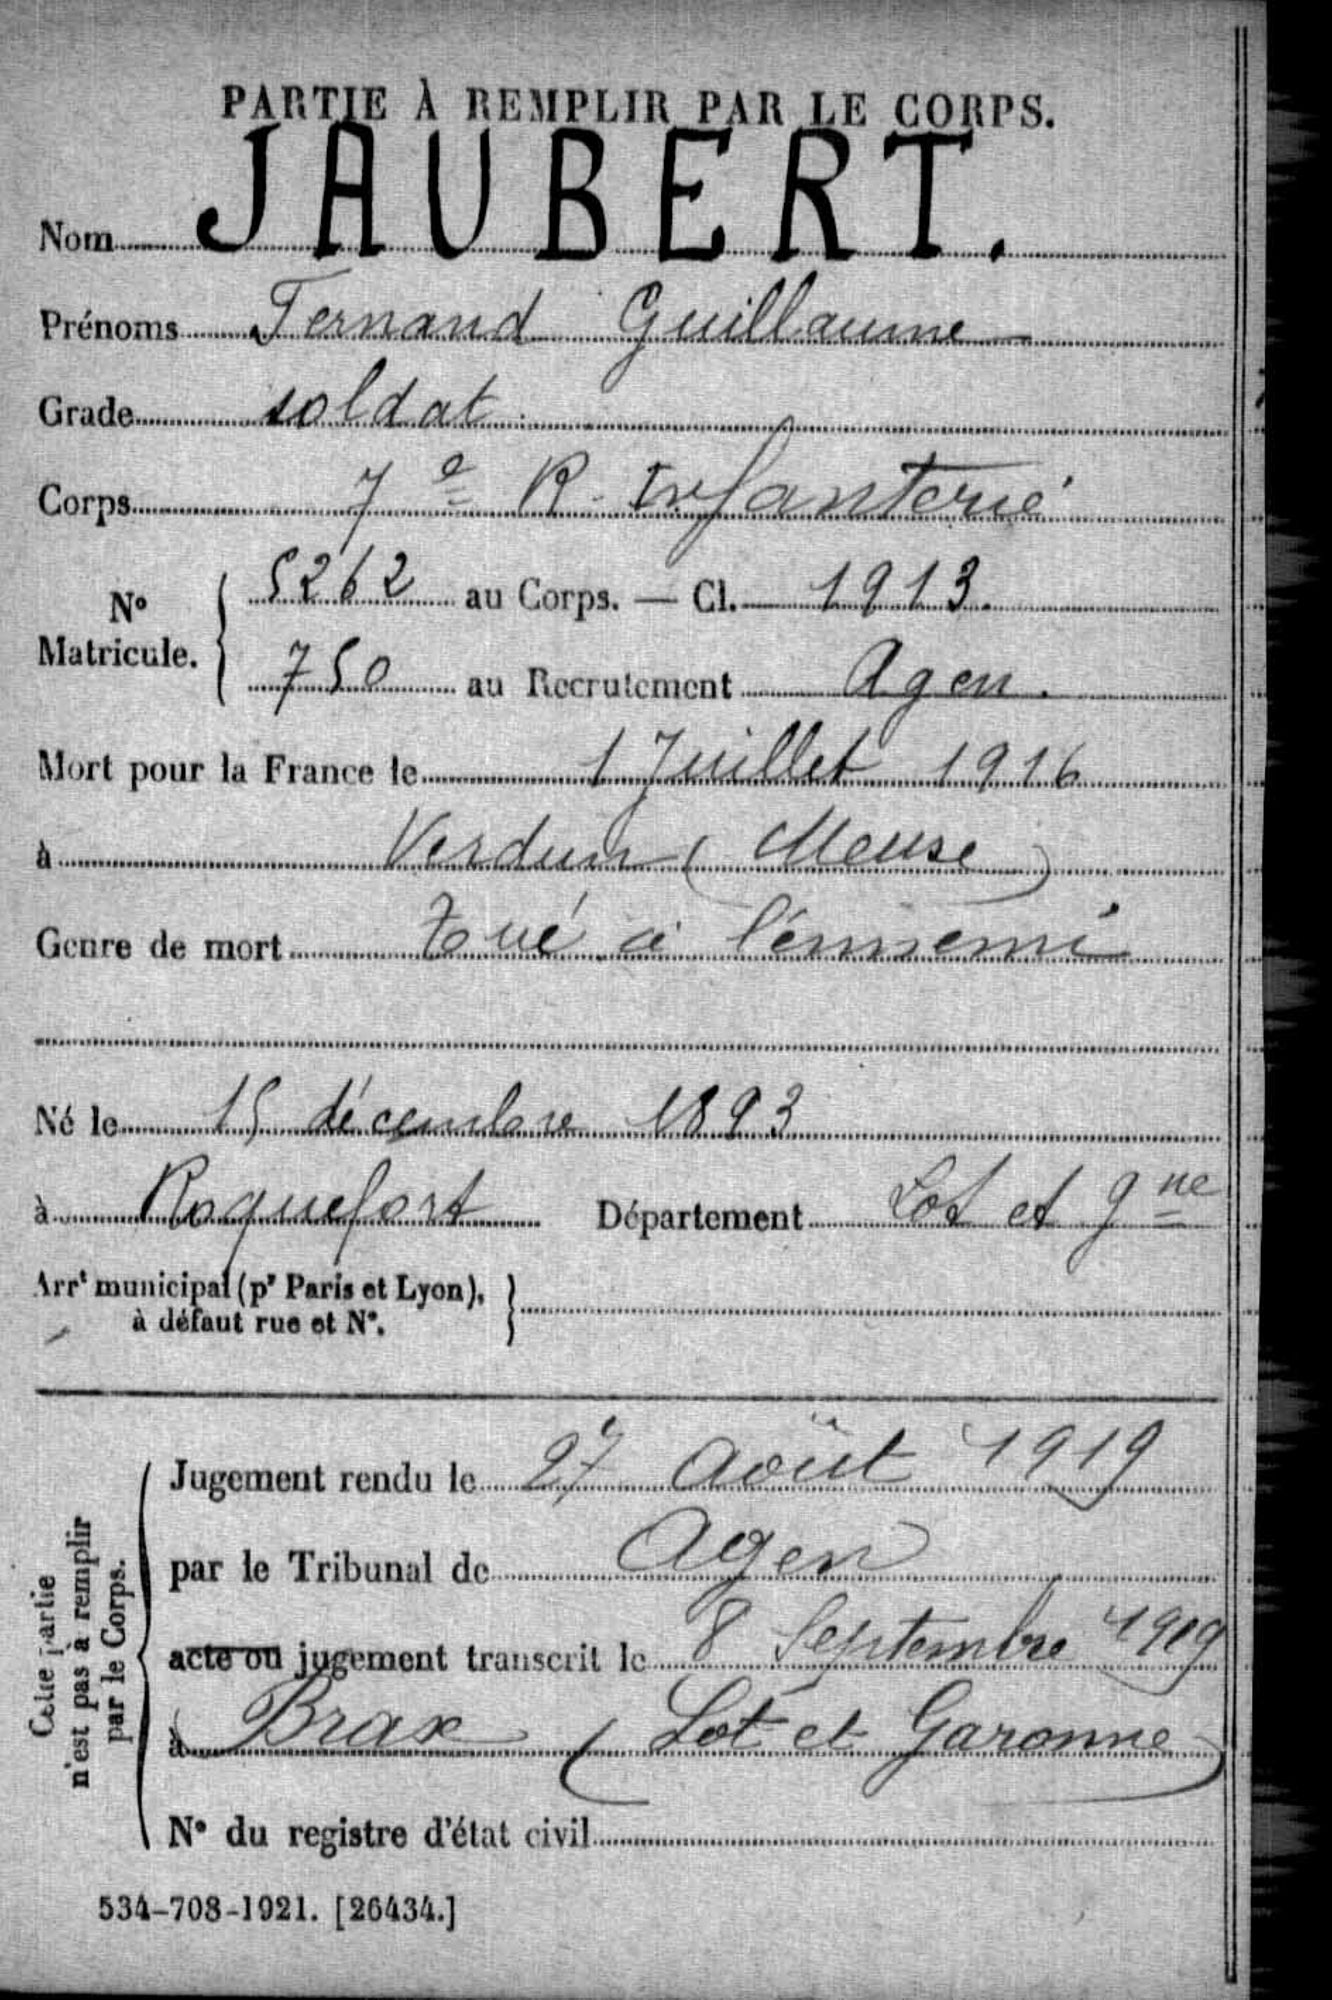 PARTIE À REMPLIR PAR LE CORPS.
Nom JAUBERT.
Prénoms Fernand Guillaume
Grade soldat
Corps 7e R. Infanterie
N° Matricule. { 5262 au Corps. — Cl. 1913.
750 au Recrutement Agen.
Mort pour la France le 1 Juillet 1916
à Verdun (Meuse)
Genre de mort tué à l'énnemi
Né le 15 décembre 1893
à Roquefort Département Lot et gne
Arrt municipal (pr Paris et Lyon), }
à défaut rue et N°.
Cette partie
n'est pas à remplir
par le Corps.
Jugement rendu le 27 Août 1919
par le Tribunal de Agen
acte ou jugement transcrit le 8 Septembre 1919
à Brax (Lot et Garonne)
N° du registre d'état civil
534-708-1921. [26434.]